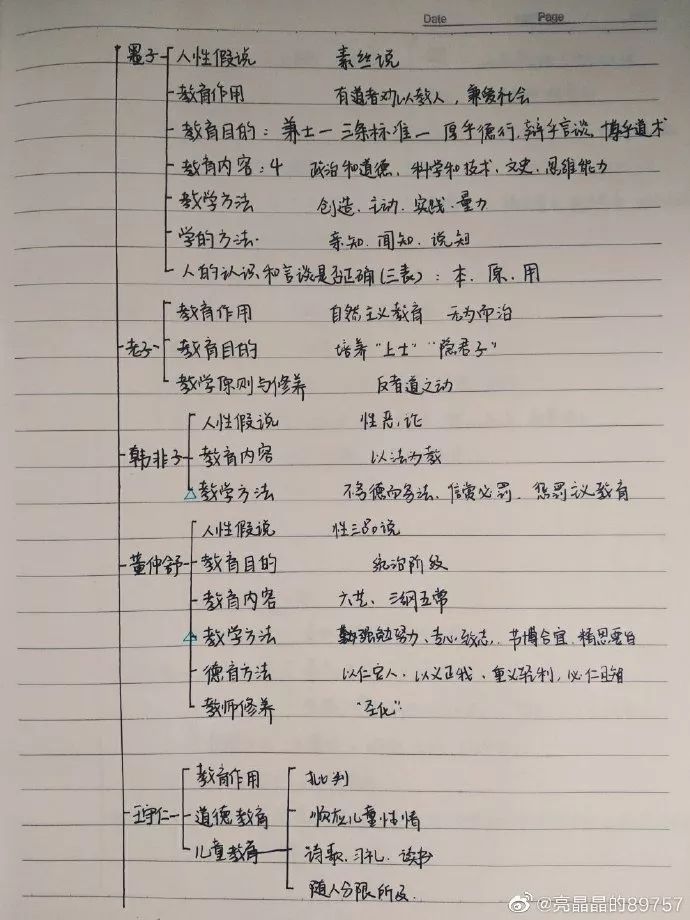 Date Page
墨子 人性假说 素丝说
教育作用 有道者劝以教人，兼爱社会
教育目的：兼士一三条标准一厚乎德行，辩乎言谈，博乎道术
教育内容：4 政治和道德、科学和技术、文史、思维能力
教学方法 创造、主动、实践、量力
学的方法. 亲知、闻知、说知
人的认识和言谈是否正确（三表）：本、原、用
教育作用 自然主义教育 无为而治
老子 教育目的 培养“上士”“隐君子”
教学原则与修养 反者道之动
人性假说 性恶论
韩非子 教育内容 以法为教
教学方法 不务德而务法、信赏必罚、惩罚主义教育
人性假说 性三品说
董仲舒 教育目的 统治阶级
教育内容 六艺、三纲五常
教学方法 强勉努力、专心致志、节博合宜、精思要旨
德育方法 以仁安人、以义正我、重义轻利，必仁且智
教师修养 “圣化”
教育作用 批判
王守仁 道德教育 顺应儿童性情
儿童教育 诗歌、习礼、读书
随人分限所及
@亮晶晶的89757